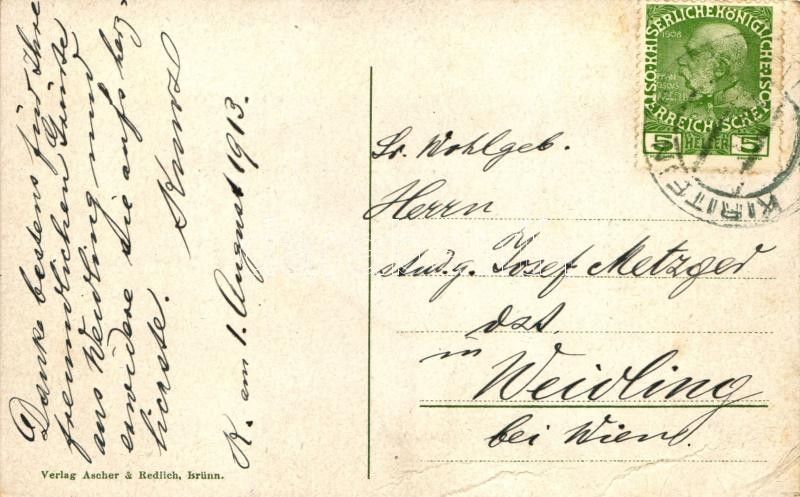 Danke bestens für Ihre
freundlichen Grüße
aus Weidling und
erwidere sie aufs herz-
lichste.
K. am 1. August 1913.
Sr. Wohlgeb.
Herrn
stud. g. Josef Metzger
dzt.
in
Weidling
bei Wien.
KAISERLICHE KÖNIGLICHE ÖSTERREICHISCHE
1908
FRANZ
JOSEF I
5 HELLER 5
Verlag Ascher & Redlich, Brünn.